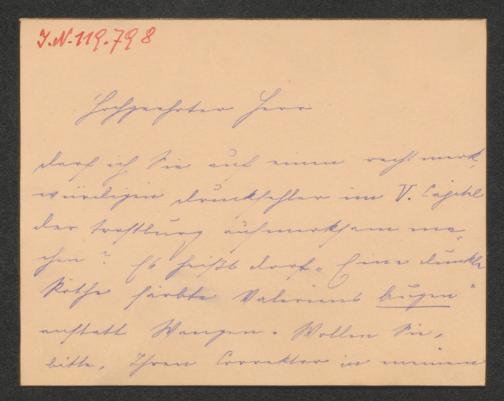 I.N. 119.798
Hochgeehrter Herr
darf ich Sie auf einen recht merk-
würdigen Druckfehler im V. Capitel
der Trostburg aufmerksam ma-
chen? Es heißt dort „Eine dunkle
Röthe färbte Valeriens Augen"
anstatt Wangen. Wollen Sie,
bitte, Ihren Correktor in meinem